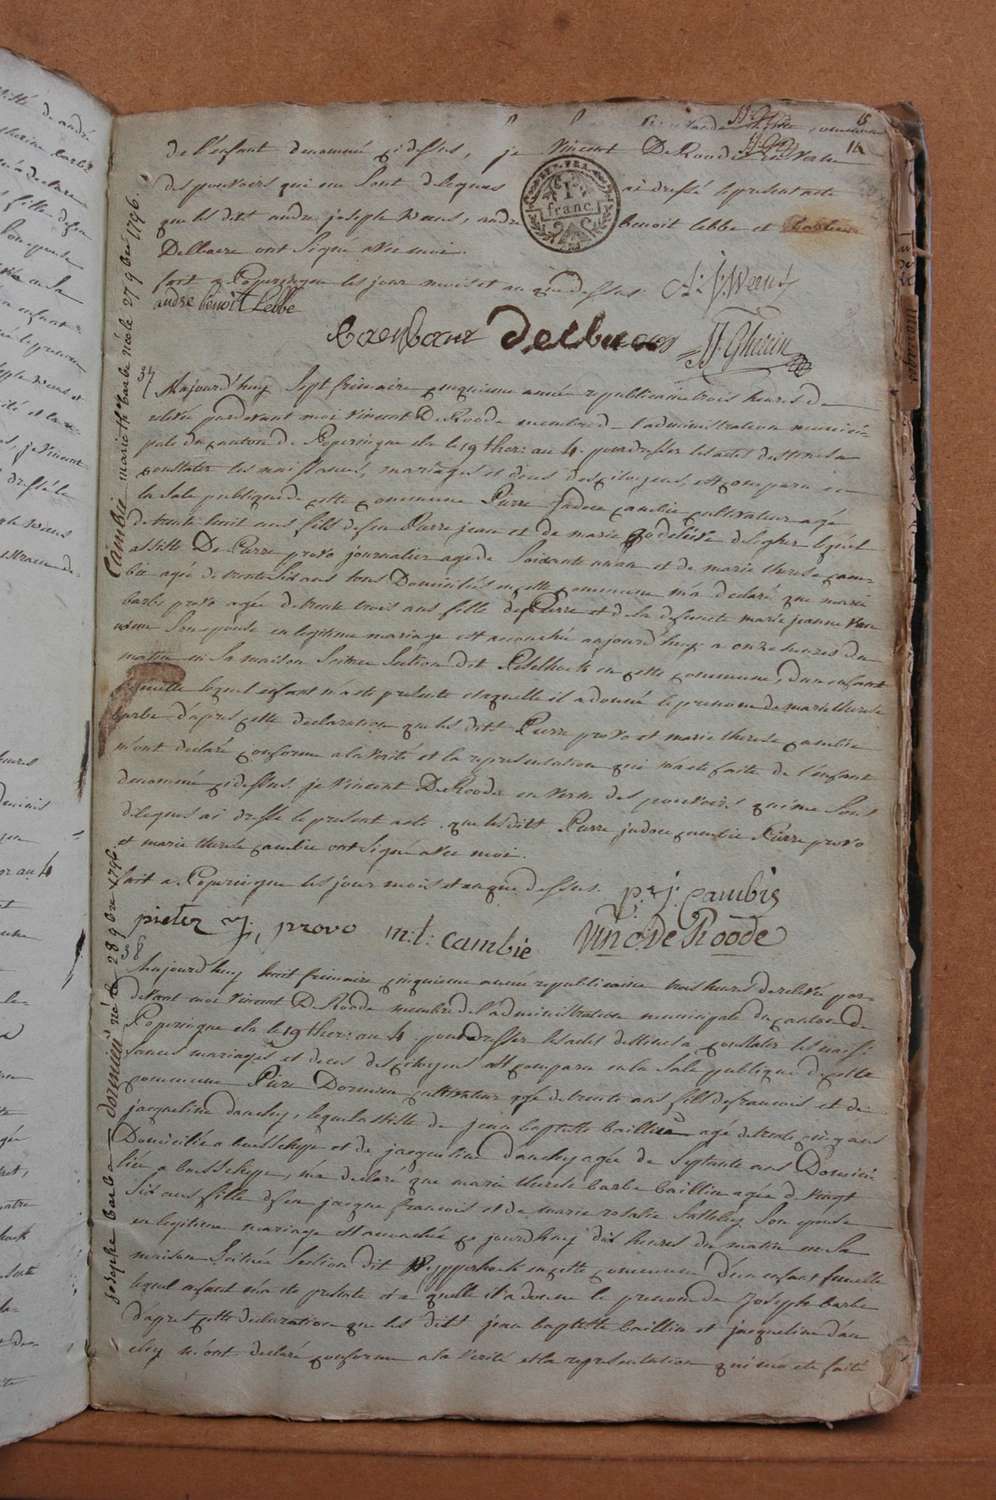 de l'enfant denommé cidessus, je Vincent DeRoode en vertu
des pouvoirs qui me sont delegués ai dressé le present acte
que les dits andre joseph Weens, andre benoit lebbe et
Dellaere ont signé avec moi.
fait a Poperingue les jour mois et an que dessus.
1 franc
andre benoit Lebbe
JJ Gherin
37
Aujourd'huy sept frimaire cinquieme année republicaine trois heures de
relevée pardevant moi Vincent DeRoode membre de l'administration munici
pale du canton de Poperingue elu le 19 ther: an 4. pour dresser les actes destinés a
constater les naissances, mariages et deces des citoyens, est comparu en
la sale publique de cette commune Pierre judoce cambie cultivateur agé
de trente huit ans fils de feu Pierre jean et de marie godelieve desegher lequel
assisté De Pierre provo journalier agé de soixante un an et de marie therese cam-
bie agée de trente six ans tous Domiciliés en cette commune m'a declaré que marie
barbe provo agée de trente trois ans fille de Pierre et de la defuncte marie jeanne
son epouse en legitime mariage est accouchée aujourd'huy a onze heures du
matin en sa maison scituee section dit Peselhoek en cette commune, d'un enfant
femelle lequel enfant m'a eté presenté et auquelle il a donné le prenom de marie therese
barbe d'apres cette declaration que les dits Pierre provo et marie therese cambie
m'ont declaré conforme a la verité et la representation qui m'a eté faite de l'enfant
denommé cidessus. je Vincent DeRoode en vertu des pouvoirs qui me sont
delegués ai dressé le present acte que les dits Pierre judoce cambie Pierre provo
et marie therese cambie ont signé avec moi.
fait a Poperingue les jour mois et an que dessus.
p: j: Cambie
pieter j, provo m:t: cambie Vinc DeRoode
38
Aujourd'huy huit frimaire cinquieme année republicaine trois heures de relevée par
devant moi Vincent DeRoode membre de l'administration municipale du canton de
Poperingue elu le 19 ther: an 4. pour dresser les actes destinés a constater les nais:
sances mariages et deces des citoyens est comparu en la sale publique de cette
commune Piere Dormieu cultivateur agé de trente ans fils de francois et de
jacqueline dauchy, lequel assisté de jean baptiste baillieu agé de trente cinq ans
Domicilié a boesschepe et de jacqueline dauchy agée de septante ans Domici
liée a boesschepe, m'a declaré que marie therese barbe baillin agée de vingt
six ans fille de feu jacque francois et de marie rosalie son epouse
en legitime mariage est accouchée ce jourd'huy dix heures du matin en sa
maison scituée section dit en cette commune d'un enfant femelle
lequel enfant m'a eté presenté et a quelle il a donné le prenom de Joseph barbe
d'apres cette declaration que les dits jean baptiste baillin et jacqueline dau
chy m'ont declaré conforme a la verité et la representation qui m'a eté faite
Cambie marie the barbe née le 27 9bre 1796.
dormieu née le 28 9bre 1796